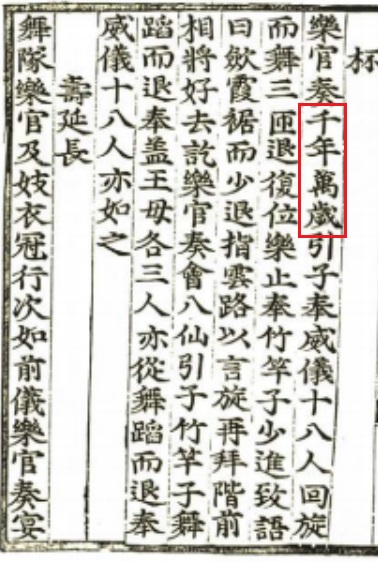 杯
樂官奏千年萬歲引子奉威儀十八人回旋
而舞三匝退復位樂止奉竹竿子少進致語
曰歛霞裾而少退指雲路以言旋再拜階前
相將好去訖樂官奏會八仙引子竹竿子舞
蹈而退奉盖王母各三人亦從舞蹈而退奉
威儀十八人亦如之
壽延長
舞隊樂官及妓衣冠行次如前儀樂官奏宴